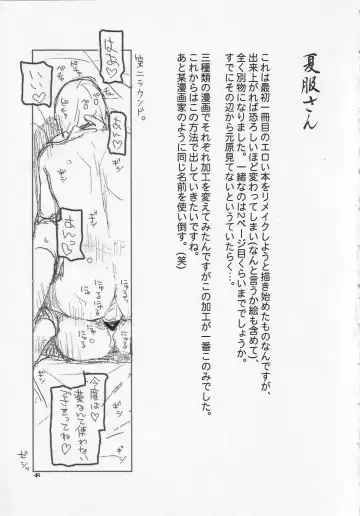 夏服さん
これは最初一冊目のエロい本をリメイクしようと描き始めたものなんですが、
出来上がれば恐ろしいほど変わってしまい(なんと言うか絵も含めて)、
全く別物になりました。一緒なのは2ページ目くらいまででしょうか。
すでにその辺から元原見てないというていたらく…。
三種類の漫画でそれぞれ加工を変えてみたんですがこの加工が一番このみでした。
これからはこの方法で出していきたいですね。
あと某漫画家のように同じ名前を使い倒す。(笑)
第二ラウンド。
はぁめ♡
あん♡
いい♡
はぁん♡
にゅる
にゅる
にゅる
にゅる
にゅる
今度は♡
なんて使わない
でさってね♡
ギシ
ギシッ